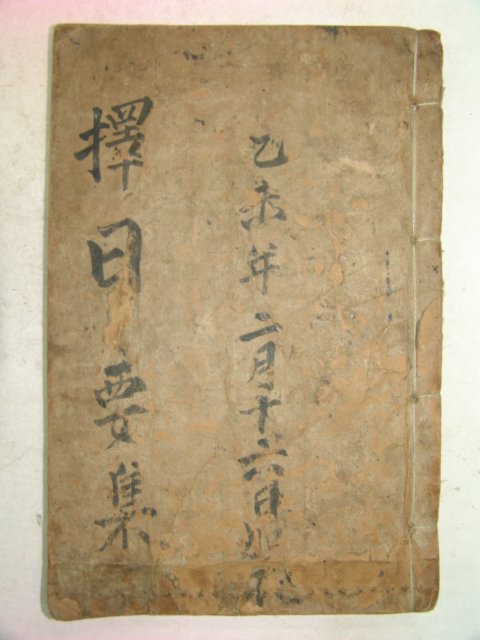 乙未年二月十六日
擇日要集